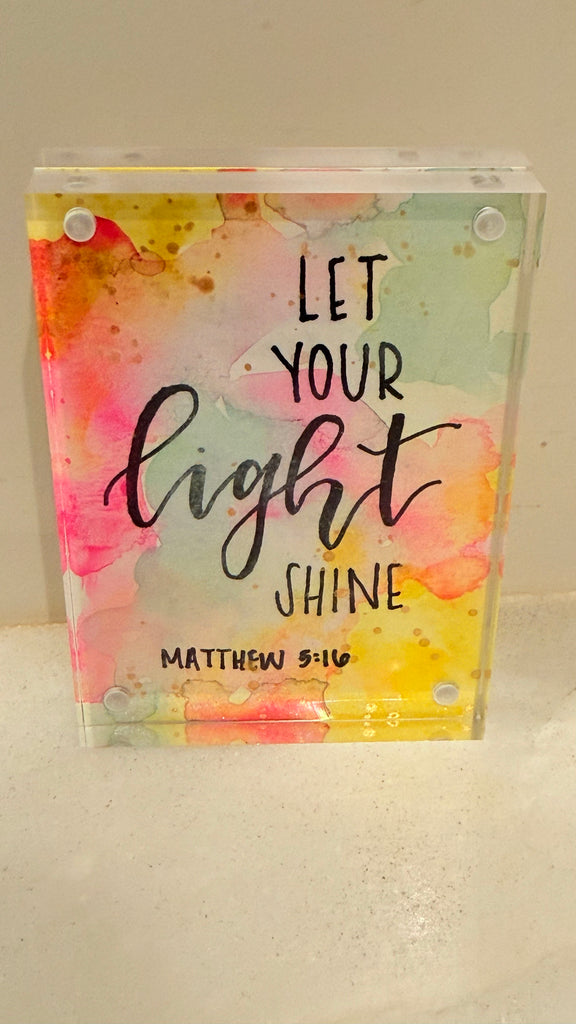 LET
YOUR
light
SHINE
MATTHEW 5:16